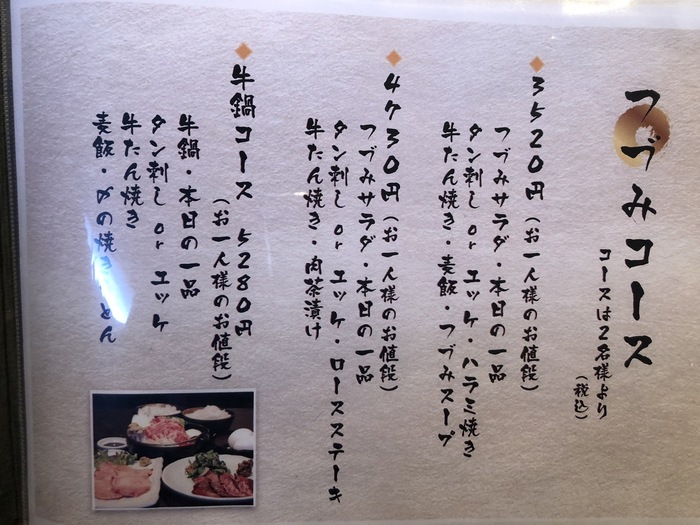 つづみコース
コースは2名様より
(税込)
3520円(お一人様のお値段)
つづみサラダ・本日の一品
タン刺し or ユッケ・ハラミ焼き
牛たん焼き・麦飯・つづみスープ
4730円(お一人様のお値段)
つづみサラダ・本日の一品
タン刺し or ユッケ・ロースステーキ
牛たん焼き・肉茶漬け
牛鍋コース 5280円
(お一人様のお値段)
牛鍋・本日の一品
タン刺し or ユッケ
牛たん焼き
麦飯・〆の焼きうどん